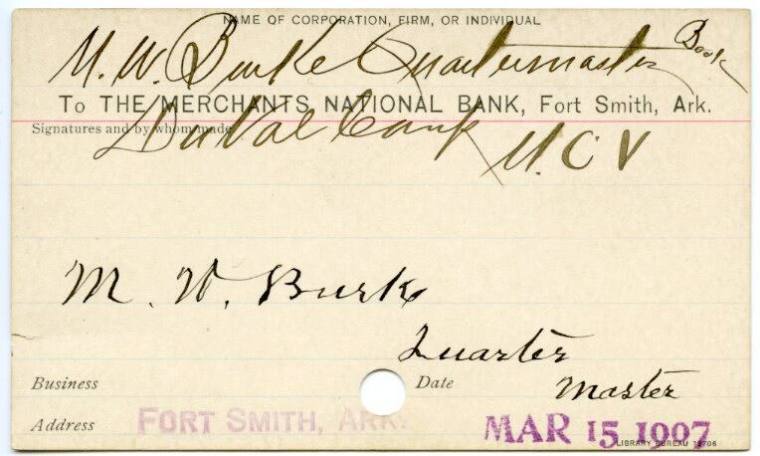 NAME OF CORPORATION, FIRM, OR INDIVIDUAL
M. W. Burke Quartermaster Book
To THE MERCHANTS NATIONAL BANK, Fort Smith, Ark.
Signatures and by whom made
DuVal Camp U.C V
M. W. Burke
Quarter
Master
Business
Date
Address
FORT SMITH, ARK.
MAR 15 1907
LIBRARY BUREAU